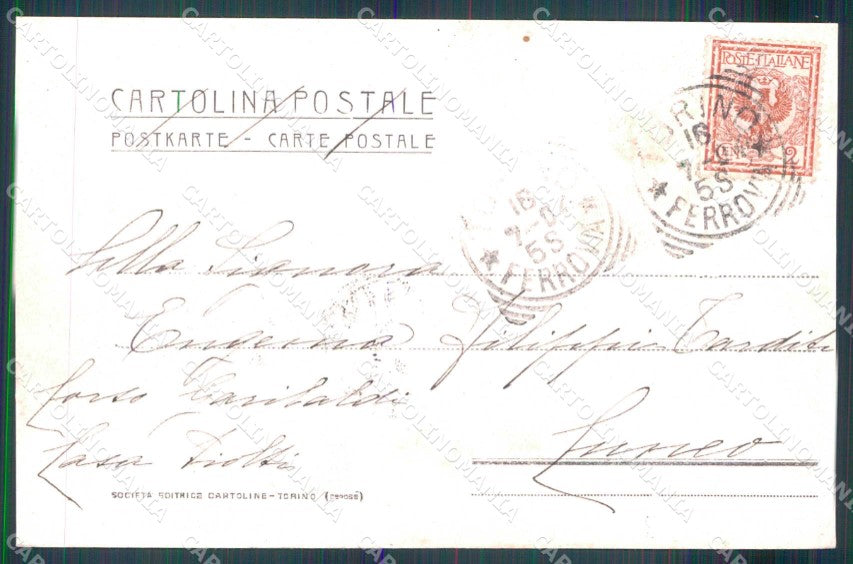 CARTOLINA POSTALE
POSTKARTE - CARTE POSTALE
POSTE ITALIANE
CENT. 2
TORINO
16
7-0
5S
★ FERROVIA ★
16
7-0
5S
★ FERROVIA ★
Alla Signora
Filippi Tarditi
Corso Garibaldi
Casa
Cuneo
SOCIETÀ EDITRICE CARTOLINE - TORINO (DEPOSÉ)
CARTOLINOMANIA